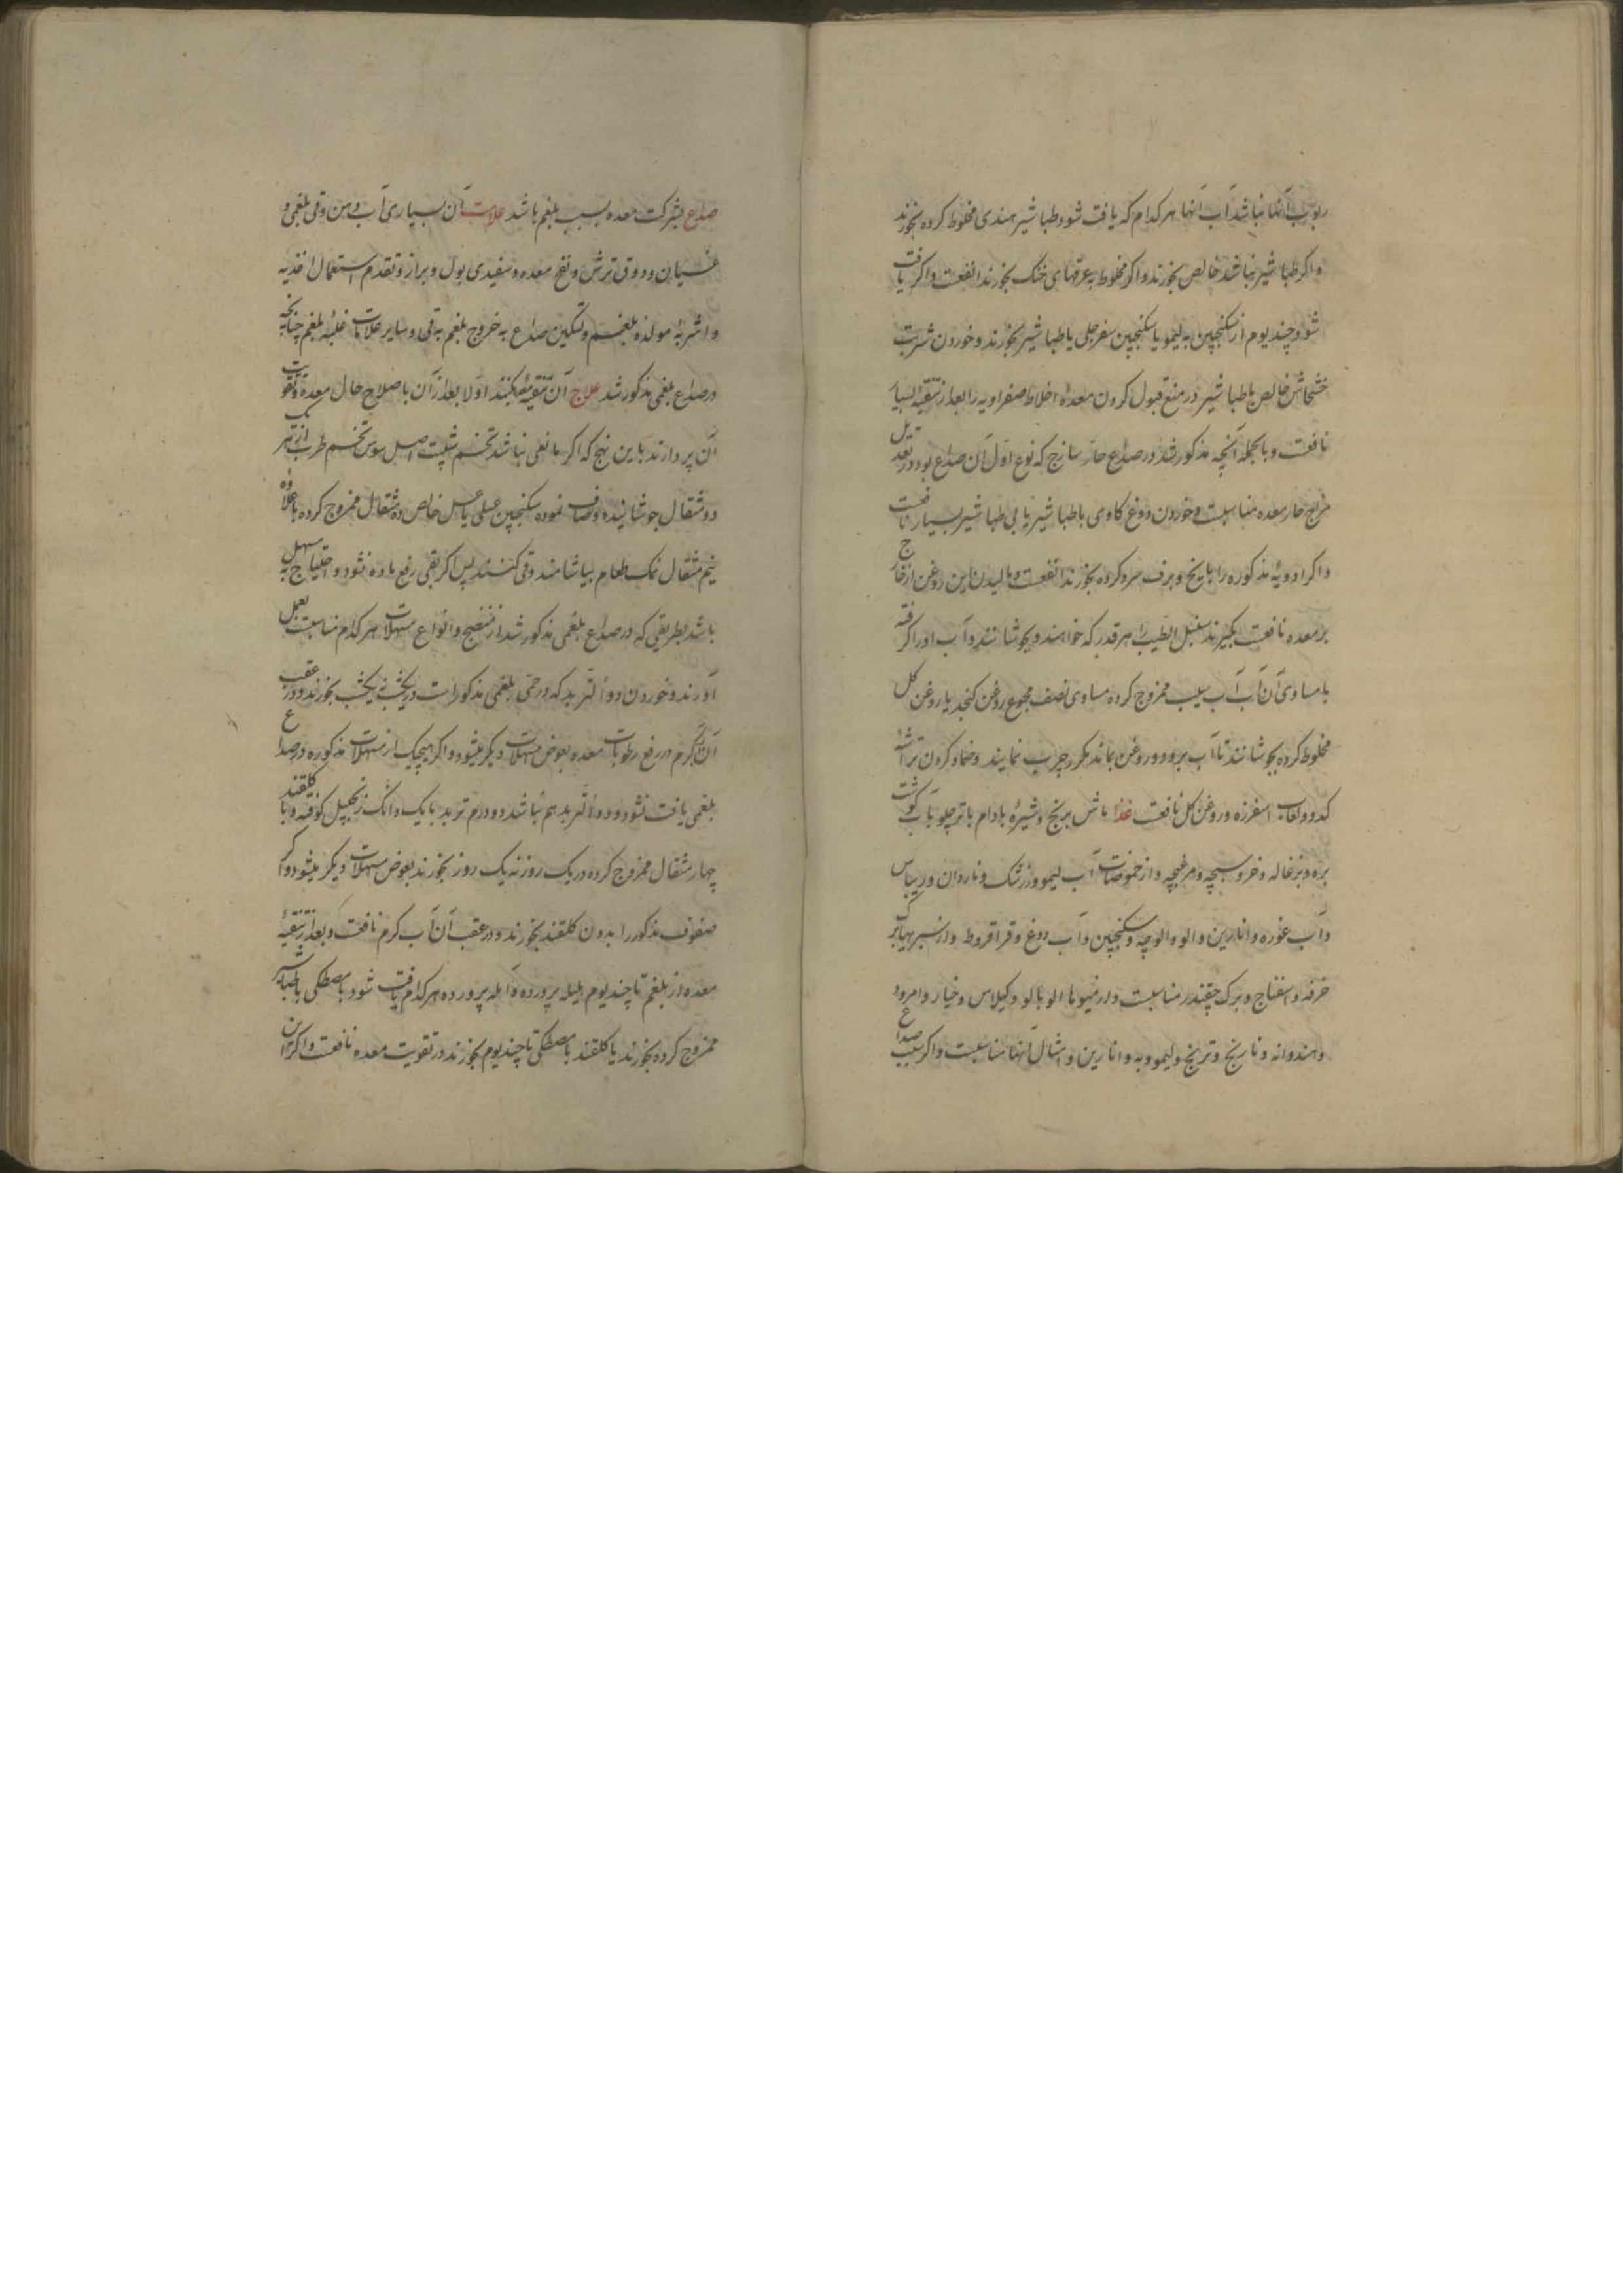 ربوب آنها نباشد آب آنها هر کدام که یافت شود و طباشیر هندی مخلوط کرده بخورند
و اکر طباشیر نباشد خالص بخورند و اکر مخلوط به عرقهای خنک بخورند انفعست و اکر یافت
شود چند یوم از سکنجبین به لیمو یا سکنجبین سفرجلی با طباشیر بخورند و خوردن شربت
خشخاش خالص با طباشیر در منع قبول کردن معده اخلاط صفراویه را بعد از تنقیه بسیار
نافعست و بالجمله آنچه مذکور شد در صداع حار ساذج که نوع اول آن صداع بود در تعدیل
مزاج حار معده مناسبست و خوردن دوغ کاوی با طباشیر یا بی طباشیر بسیار نافعست
و اکر ادویه مذکوره را با یخ و برف سرد کرده بخورند انفعست و مالیدن این روغن از خارج
بر معده نافعست بکیرند سنبل الطیب را هر قدر که خواهند و بجوشانند و آب او را کرفته
با مساوی آن آب آب سیب ممزوج کرده مساوی نصف مجموع روغن کنجد یا روغن کل
مخلوط کرده بجوشانند تا آب برود و روغن بماند مکرر چرب نمایند و ضماد کردن تراشه
کدو و لعاب اسفرزه و روغن کل نافعست غذا ماش برنج و شیره بادام با تر چلو با آب کوشت
بره و بزغاله و خروسبچه و مرغبچه و از حموضات آب لیمو و زرشک و ناردان و ریباس
و آب غوره و انارین و الو و الوچه و سکنجبین و آب دوغ و قراقروط و از سبزیها برک
خرفه و اسفناج و برک چقندر مناسبست و از میوها الوبالو و کیلاس و خیار و امرود
و هندوانه و نارنج و ترنج و لیمو و به و انارین و امثال آنها مناسبست و اکر بسبب صداع
صداع بشرکت معده بسبب بلغم باشد علامت آن بسیاری آب دهن و قی بلغمی و
غثیان و ذوق ترش و نفخ معده و سفیدی بول و براز و تقدم استعمال اغذیه
و اشربه مولده بلغم و تسکین صداع به خروج بلغم به قی و سایر علامات غلبه بلغم چنانچه
در صداع بلغمی مذکور شد علاج آن تنقیه بکنند اولا بعد از آن باصلاح حال معده و تقویت
آن پردازند باین نهج که اکر مانعی نباشد تخم شبت اصل سوس تخم ترب از هر یک
دو مثقال جوشانیده و صاف نموده سکنجبین عسلی یا عسل خالص ده مثقال ممزوج کرده با علاوه
نیم مثقال نمک طعام بیاشامند و قی کنند پس اکر بقی رفع ماده نشود و احتیاج به مسهل
باشد بطریقی که در صداع بلغمی مذکور شد از منضج و انواع مسهلات هر کدام مناسبست بعمل
آورند و خوردن دواء التربد که در حمی بلغمی مذکور است در یکشب نه یکشب بخورند و در عقب
آن آب کرم در رفع رطوبات معده بعوض مسهلات دیکر میشود و اکر هیچیک از مسهلات مذکوره در صداع
بلغمی یافت نشود و دواء التربد هم نباشد دو درم تربد با یک دانک زنجبیل کوفته و با کلقند
چهار مثقال ممزوج کرده در یک روز نه یک روز بخورند بعوض مسهلات دیکر میشود و اکر
سفوف مذکور را بدون کلقند بخورند و در عقب آن آب کرم نافعست و بعد از تنقیه
معده از بلغم تا چند یوم هلیله پرورده و آمله پرورده هر کدام یافت شود با مصطکی یا طباشیر
ممزوج کرده بخورند یا کلقند با مصطکی تا چند یوم بخورند در تقویت معده نافعست و اکر از این